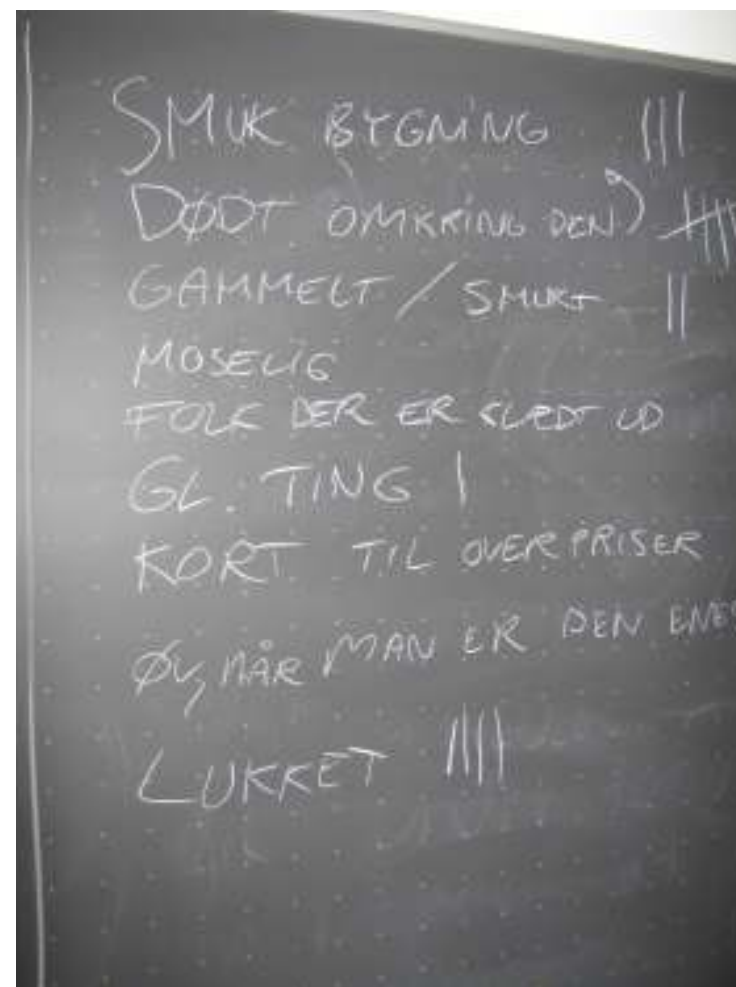 SMUK BYGNING |||
DØDT OMKRING DEN
GAMMELT / SMUKT ||
MOSELIG
FOLK DER ER KLÆDT UD
GL. TING |
KORT TIL OVERPRISER
ØV, NÅR MAN ER DEN
LUKKET ||||